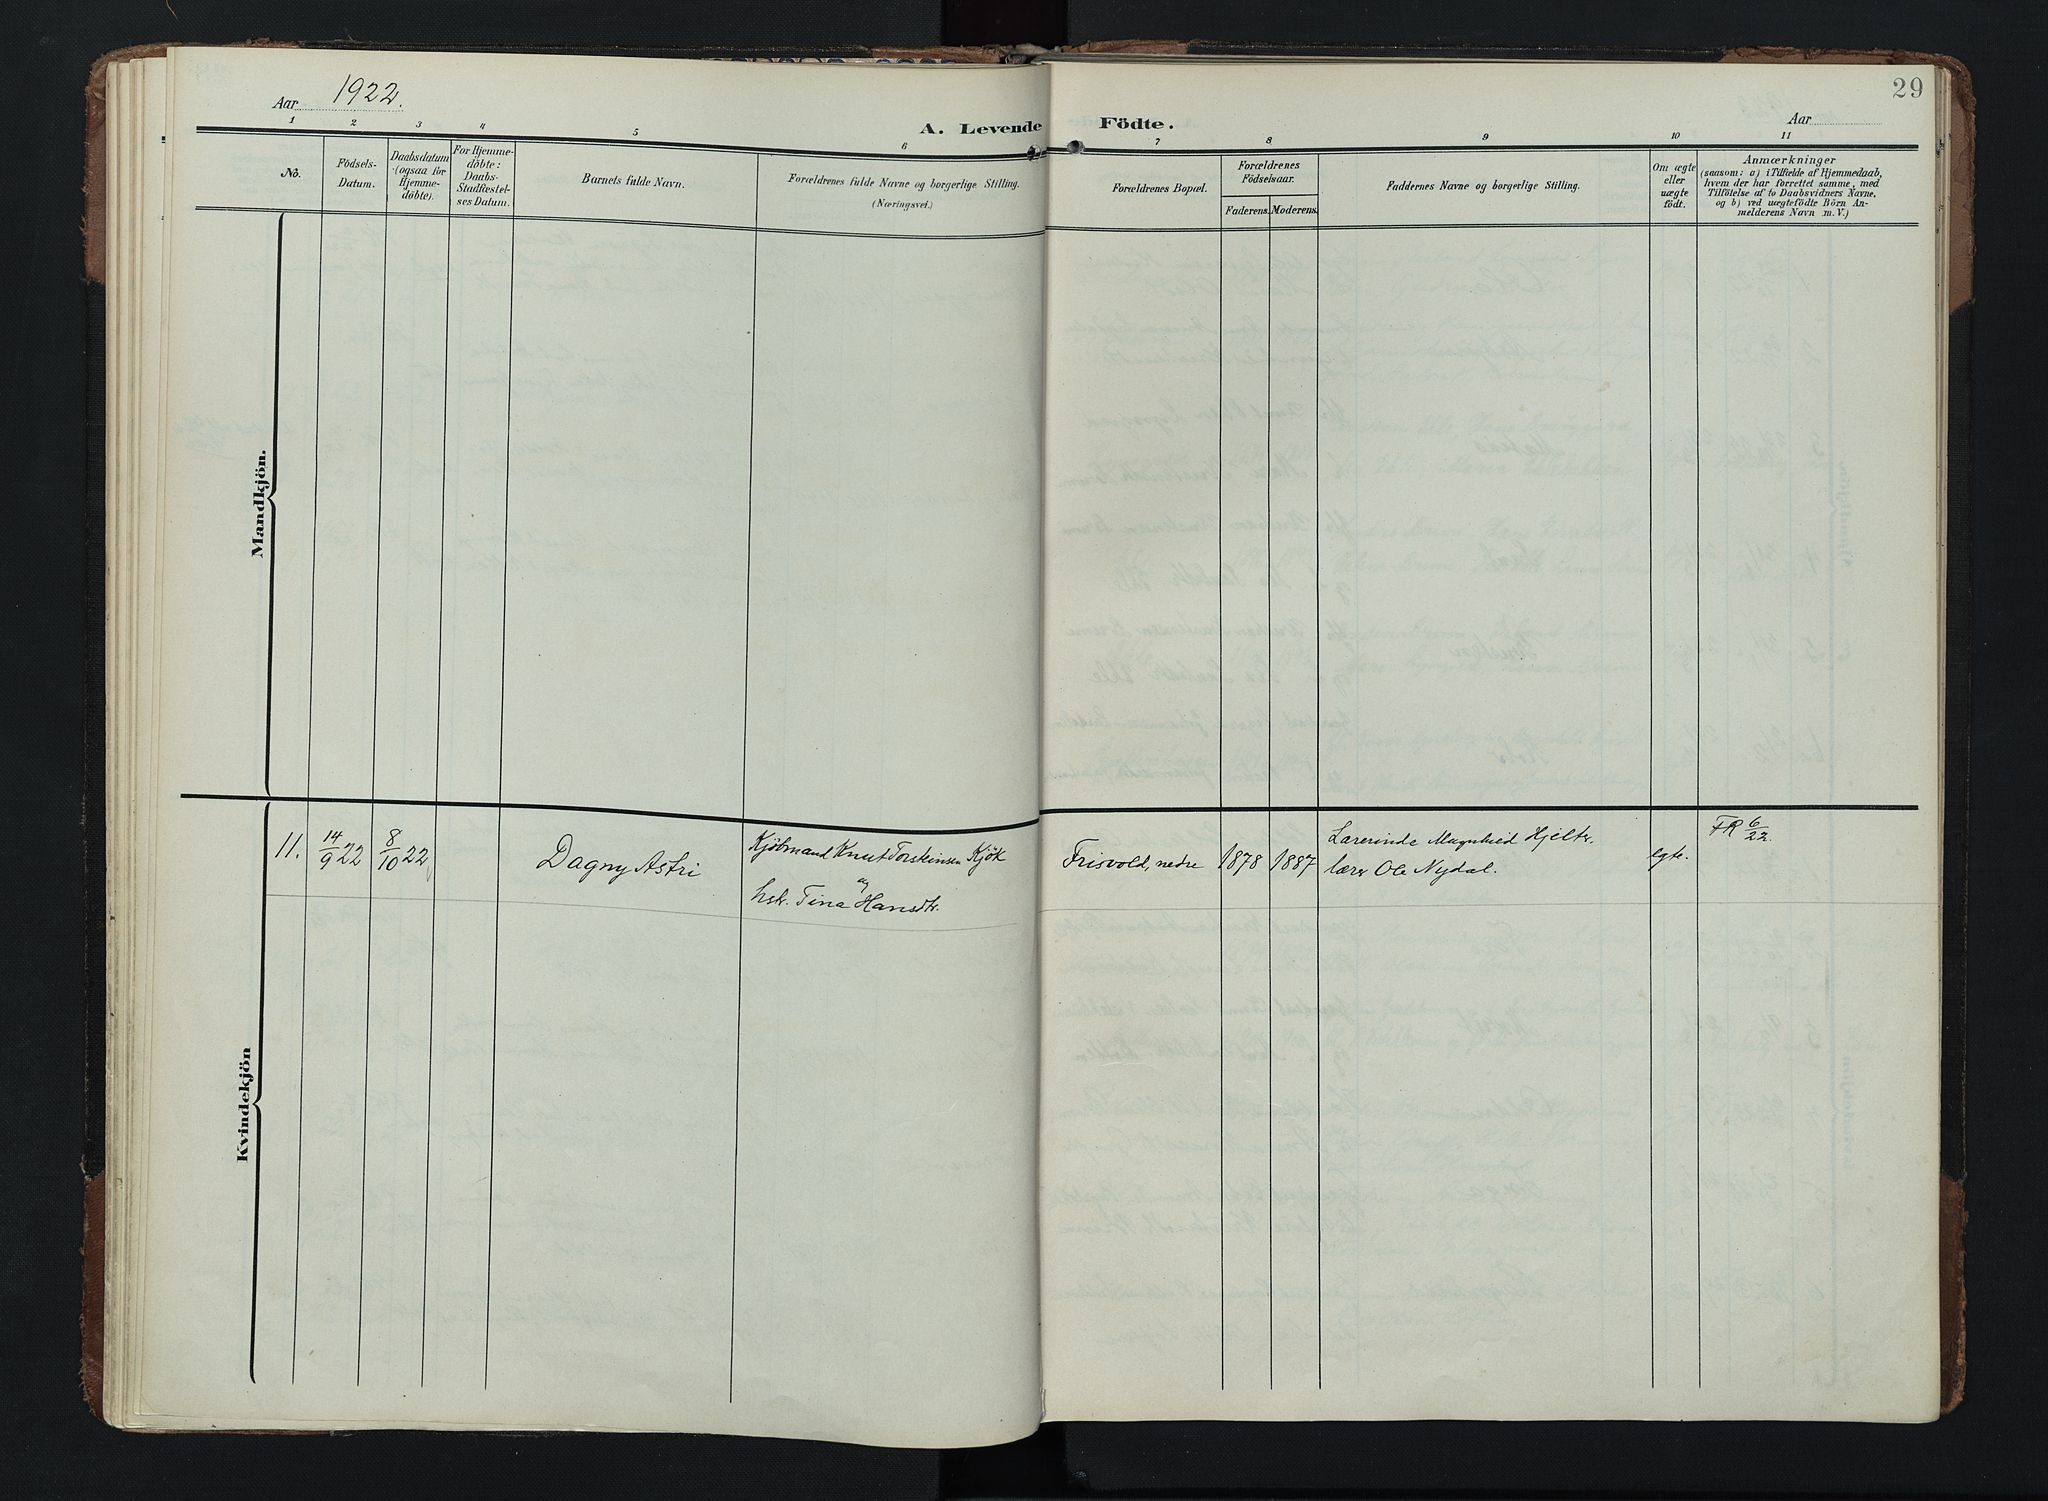 29
Aar 1922.
Aar
A. Levende Födte.
1 2 3 4 5 6 7 8 9 10 11
No.
Födsels-
Datum.
Daabsdatum
(ogsaa for
Hjemme-
döbte).
For Hjemme-
döbte:
Daabs-
Stadfæstel-
ses Datum.
Barnets fulde Navn.
Forældrenes fulde Navne og borgerlige Stilling.
(Næringsvei.)
Forældrenes Bopæl.
Forældrenes
Födselsaar.
Faderens. Moderens.
Faddernes Navne og borgerlige Stilling.
Om ægte
eller
uægte
födt.
Anmærkninger
(saasom: a) i Tilfælde af Hjemmedaab,
hvem der har forrettet samme, med
Tilföielse af to Daabsvidners Navne,
og b) ved uægtefödte Börn An-
melderens Navn m. V.)
Mandkjön.
Kvindekjön
11. 14/9 22 8/10 22 Dagny Astri
Kjöbmand Knut Torsteinsen Kjök
og
hstr. Tina Hansdtr.
Frisvold, nedre 1878 1887
Lærerinde Magnhild Hjelter.
lærer Ole Nydal.
egte.
FR 6/22.